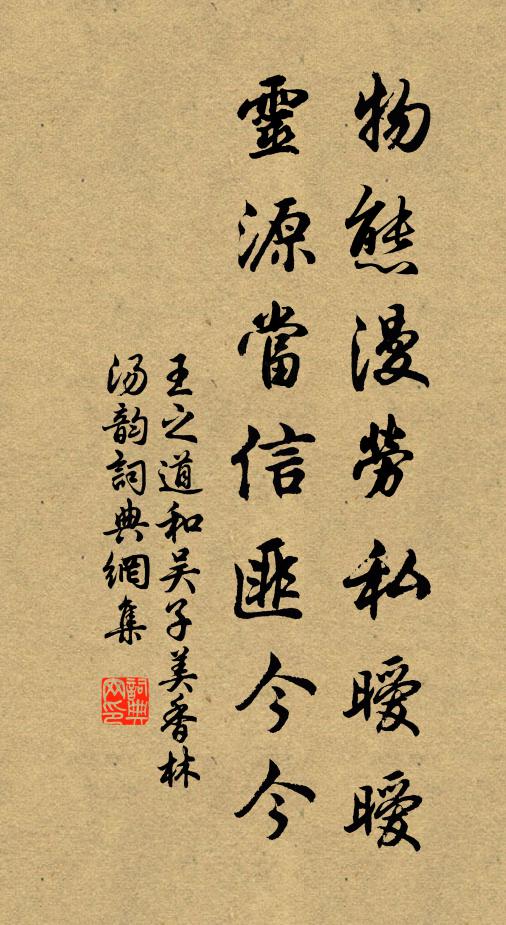 物態漫勞私曖曖
靈源當信匪今今
王之道和吴子美香林
汤韵詞典網集
詞典网印